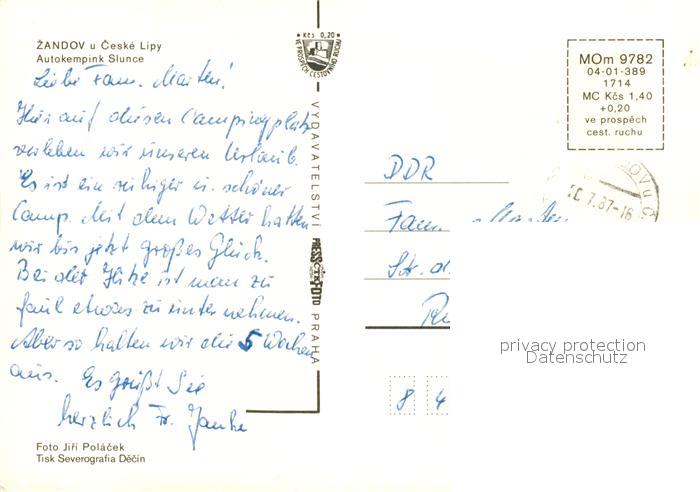 ŽANDOV u České Lípy
Autokempink Slunce
Liebe Fam. Marten!
Hier auf diesen Campingplatz
verleben wir unseren Urlaub.
Es ist ein ruhiger u. schöner
Camp. Mit dem Wetter hatten
wir bis jetzt großes Glück.
Bei der Hitze ist man zu
faul etwas zu unternehmen.
Aber so halten wir die 5 Wochen
aus. Es grüßt Sie
herzlich Fr. Janke
Foto Jiří Poláček
Tisk Severografia Děčín
Kčs 0,20
VE PROSPĚCH CESTOVNÍHO RUCHU
VYDAVATELSTVÍ PRESSFOTO PRAHA
MOm 9782
04-01-389
1714
MC Kčs 1,40
+0,20
ve prospěch
cest. ruchu
7.87-16
DDR
Fam.
Str. d.
8 4
privacy protection
Datenschutz